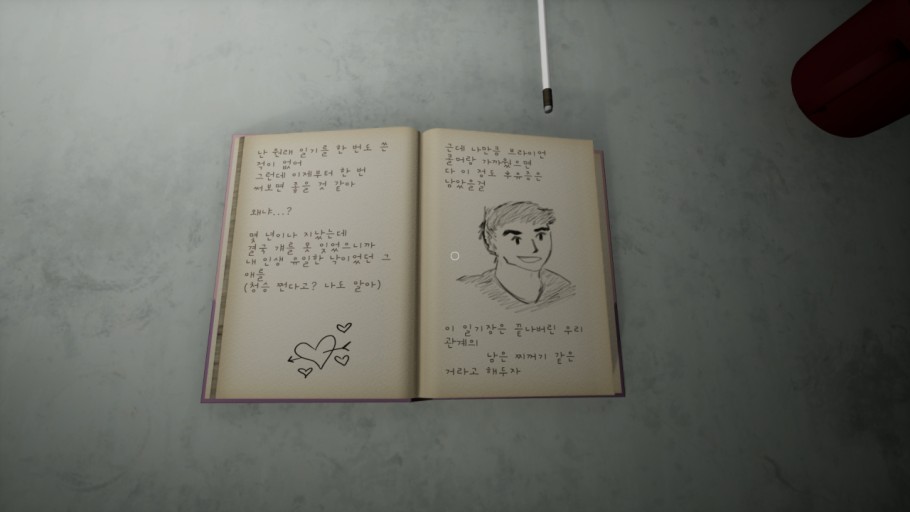 난 원래 일기를 한 번도 쓴
적이 없어
그런데 이제부터 한 번
써보면 좋을 것 같아
왜냐...?
몇 년이나 지났는데
결국 걔를 못 잊었으니까
내 인생 유일한 낙이었던 그
애를
(청승 떤다고? 나도 알아)
근데 나만큼 브라이언
콜머랑 가까웠으면
다 이 정도 후유증은
남았을걸
이 일기장은 끝나버린 우리
관계의
남은 찌꺼기 같은
거라고 해두자